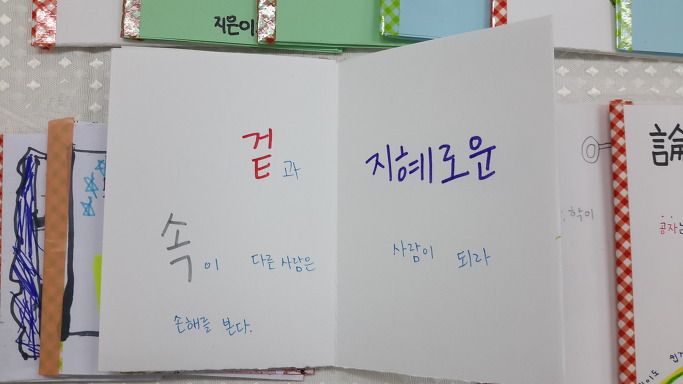 지은이
겉과
속이 다른 사람은
손해를 본다.
지혜로운
사람이 되라
학이
論
공자